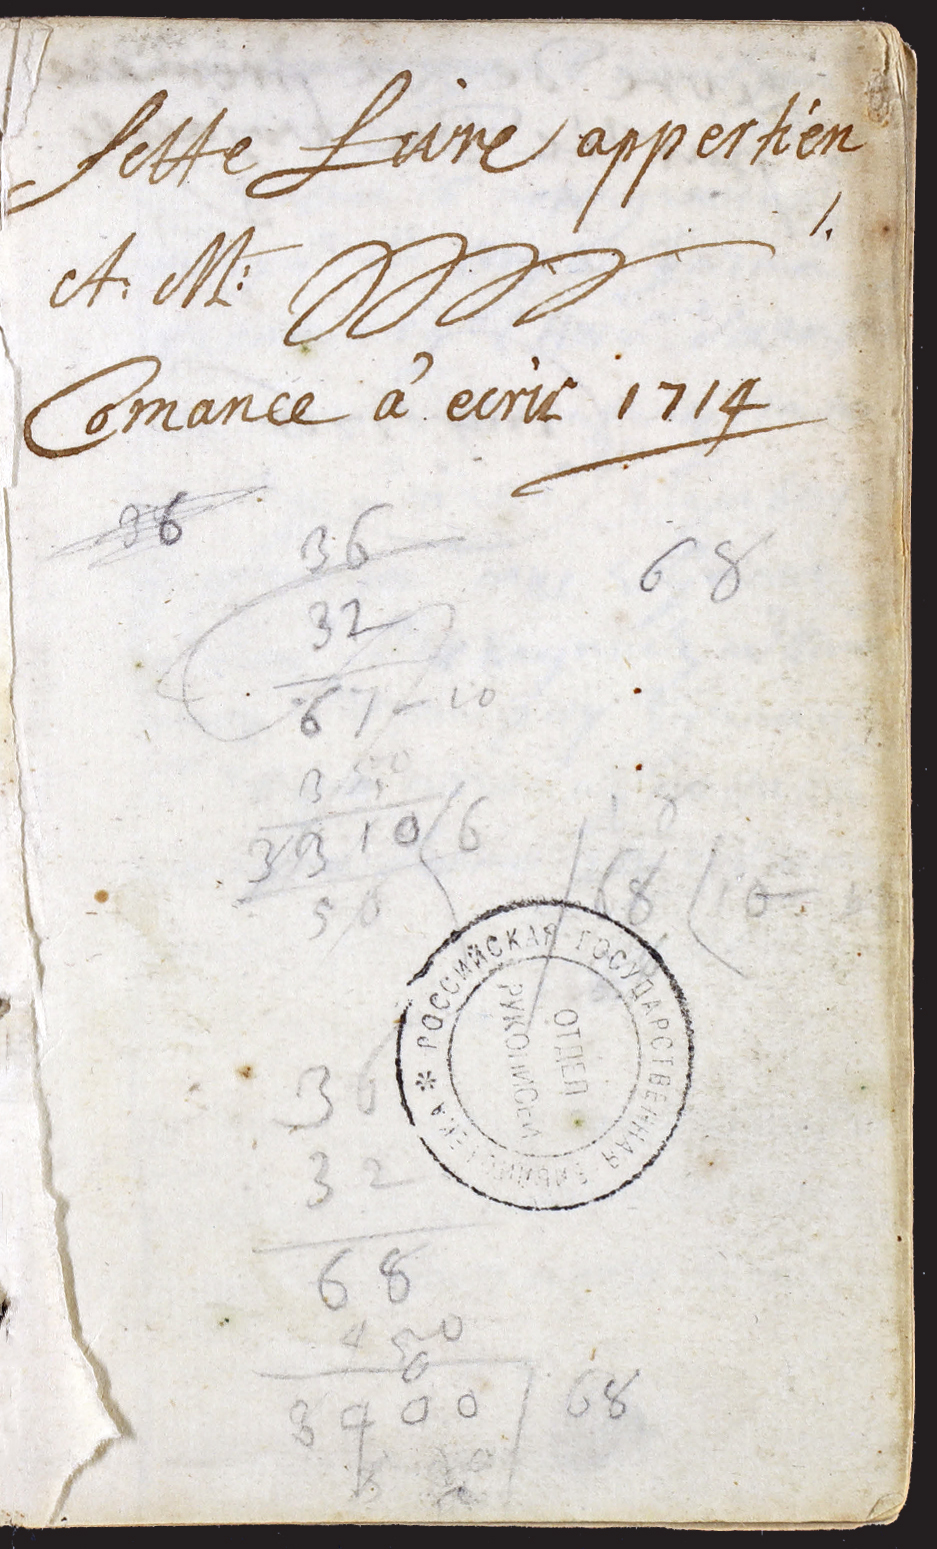 Sette Livre appertien
1.
A. M:
Comance à ecrir 1714
36
36
68
32
67-10
350
3310 6
18
68 (10
56
* РОССИЙСКАЯ ГОСУДАРСТВЕННАЯ БИБЛИОТЕКА
ОТДЕЛ
РУКОПИСЕЙ
36
32
68
50
3400 68